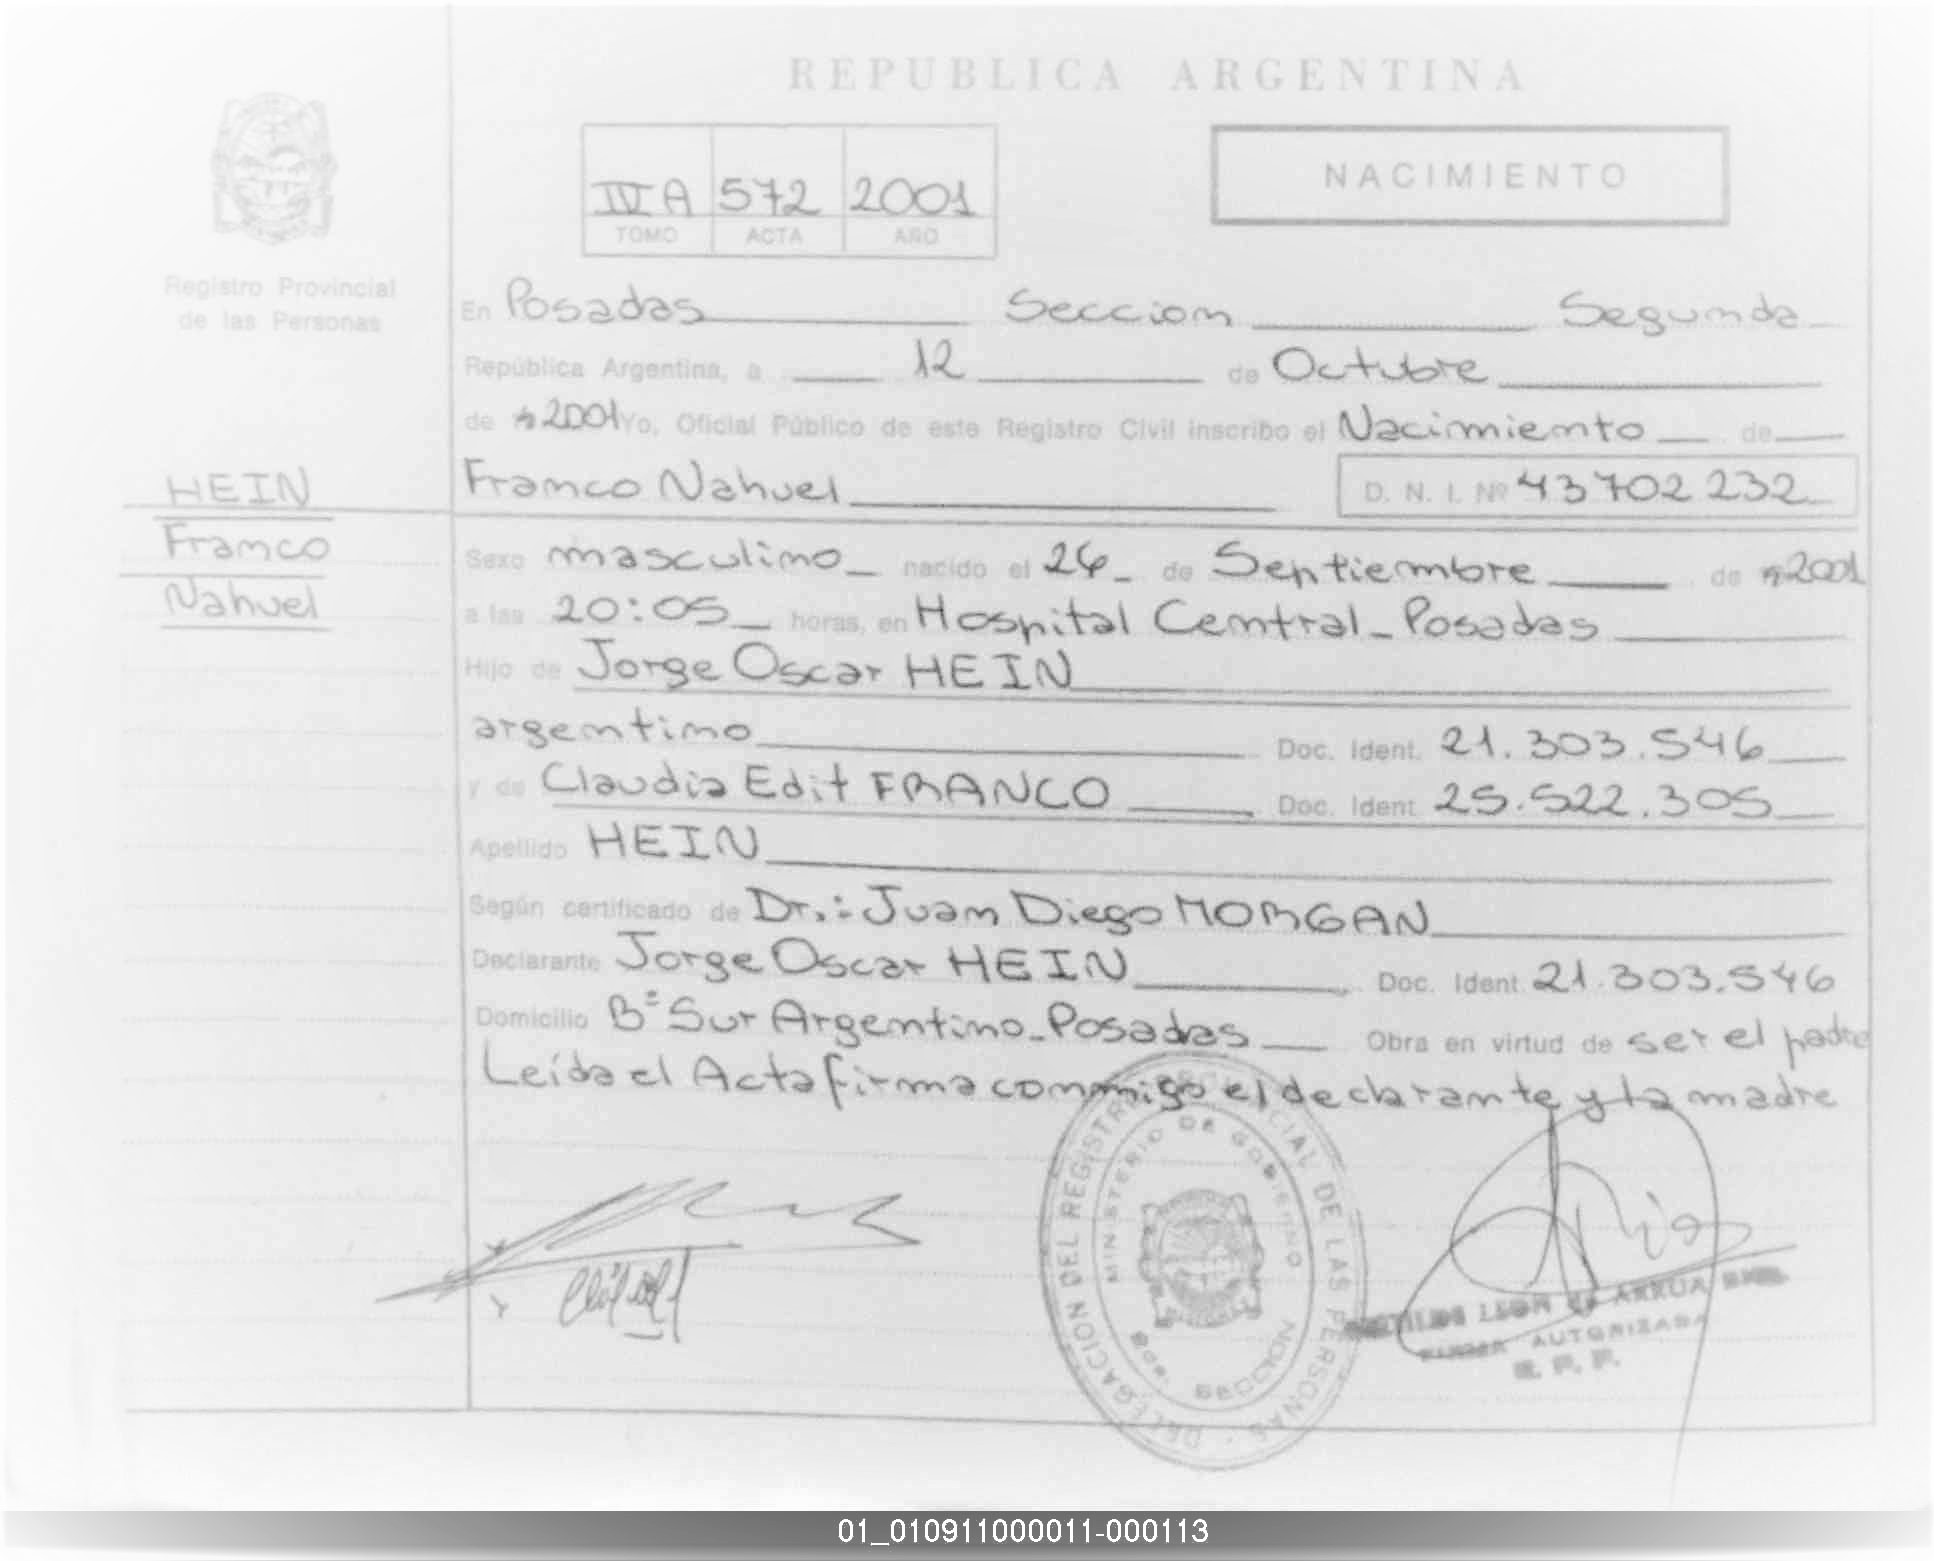 REPUBLICA ARGENTINA
NACIMIENTO
IV A 572 2001
TOMO ACTA AÑO
Registro Provincial
de las Personas
En Posadas Seccion Segunda
República Argentina, a 12 de Octubre
de 2001 Yo, Oficial Público de este Registro Civil inscribo el Nacimiento de
HEIN
Franco
Nahuel
Franco Nahuel D. N. I. Nº 43702232
Sexo masculino nacido el 26 de Septiembre de 2001
a las 20:05 horas, en Hospital Central - Posadas
Hijo de Jorge Oscar HEIN
argentino Doc. Ident. 21.303.546
y de Claudia Edit FRANCO Doc. Ident. 25.522.305
Apellido HEIN
Según certificado de Dr.: Juan Diego MORGAN
Declarante Jorge Oscar HEIN Doc. Ident. 21.303.546
Domicilio Bº Sur Argentino - Posadas Obra en virtud de ser el padre
Leída el Acta firma conmigo el declarante y la madre
DELEGACION DEL REGISTRO PROVINCIAL DE LAS PERSONAS
MINISTERIO DE GOBIERNO
SECCION
LEON de ARRUA
AUTORIZADA
01_010911000011-000113